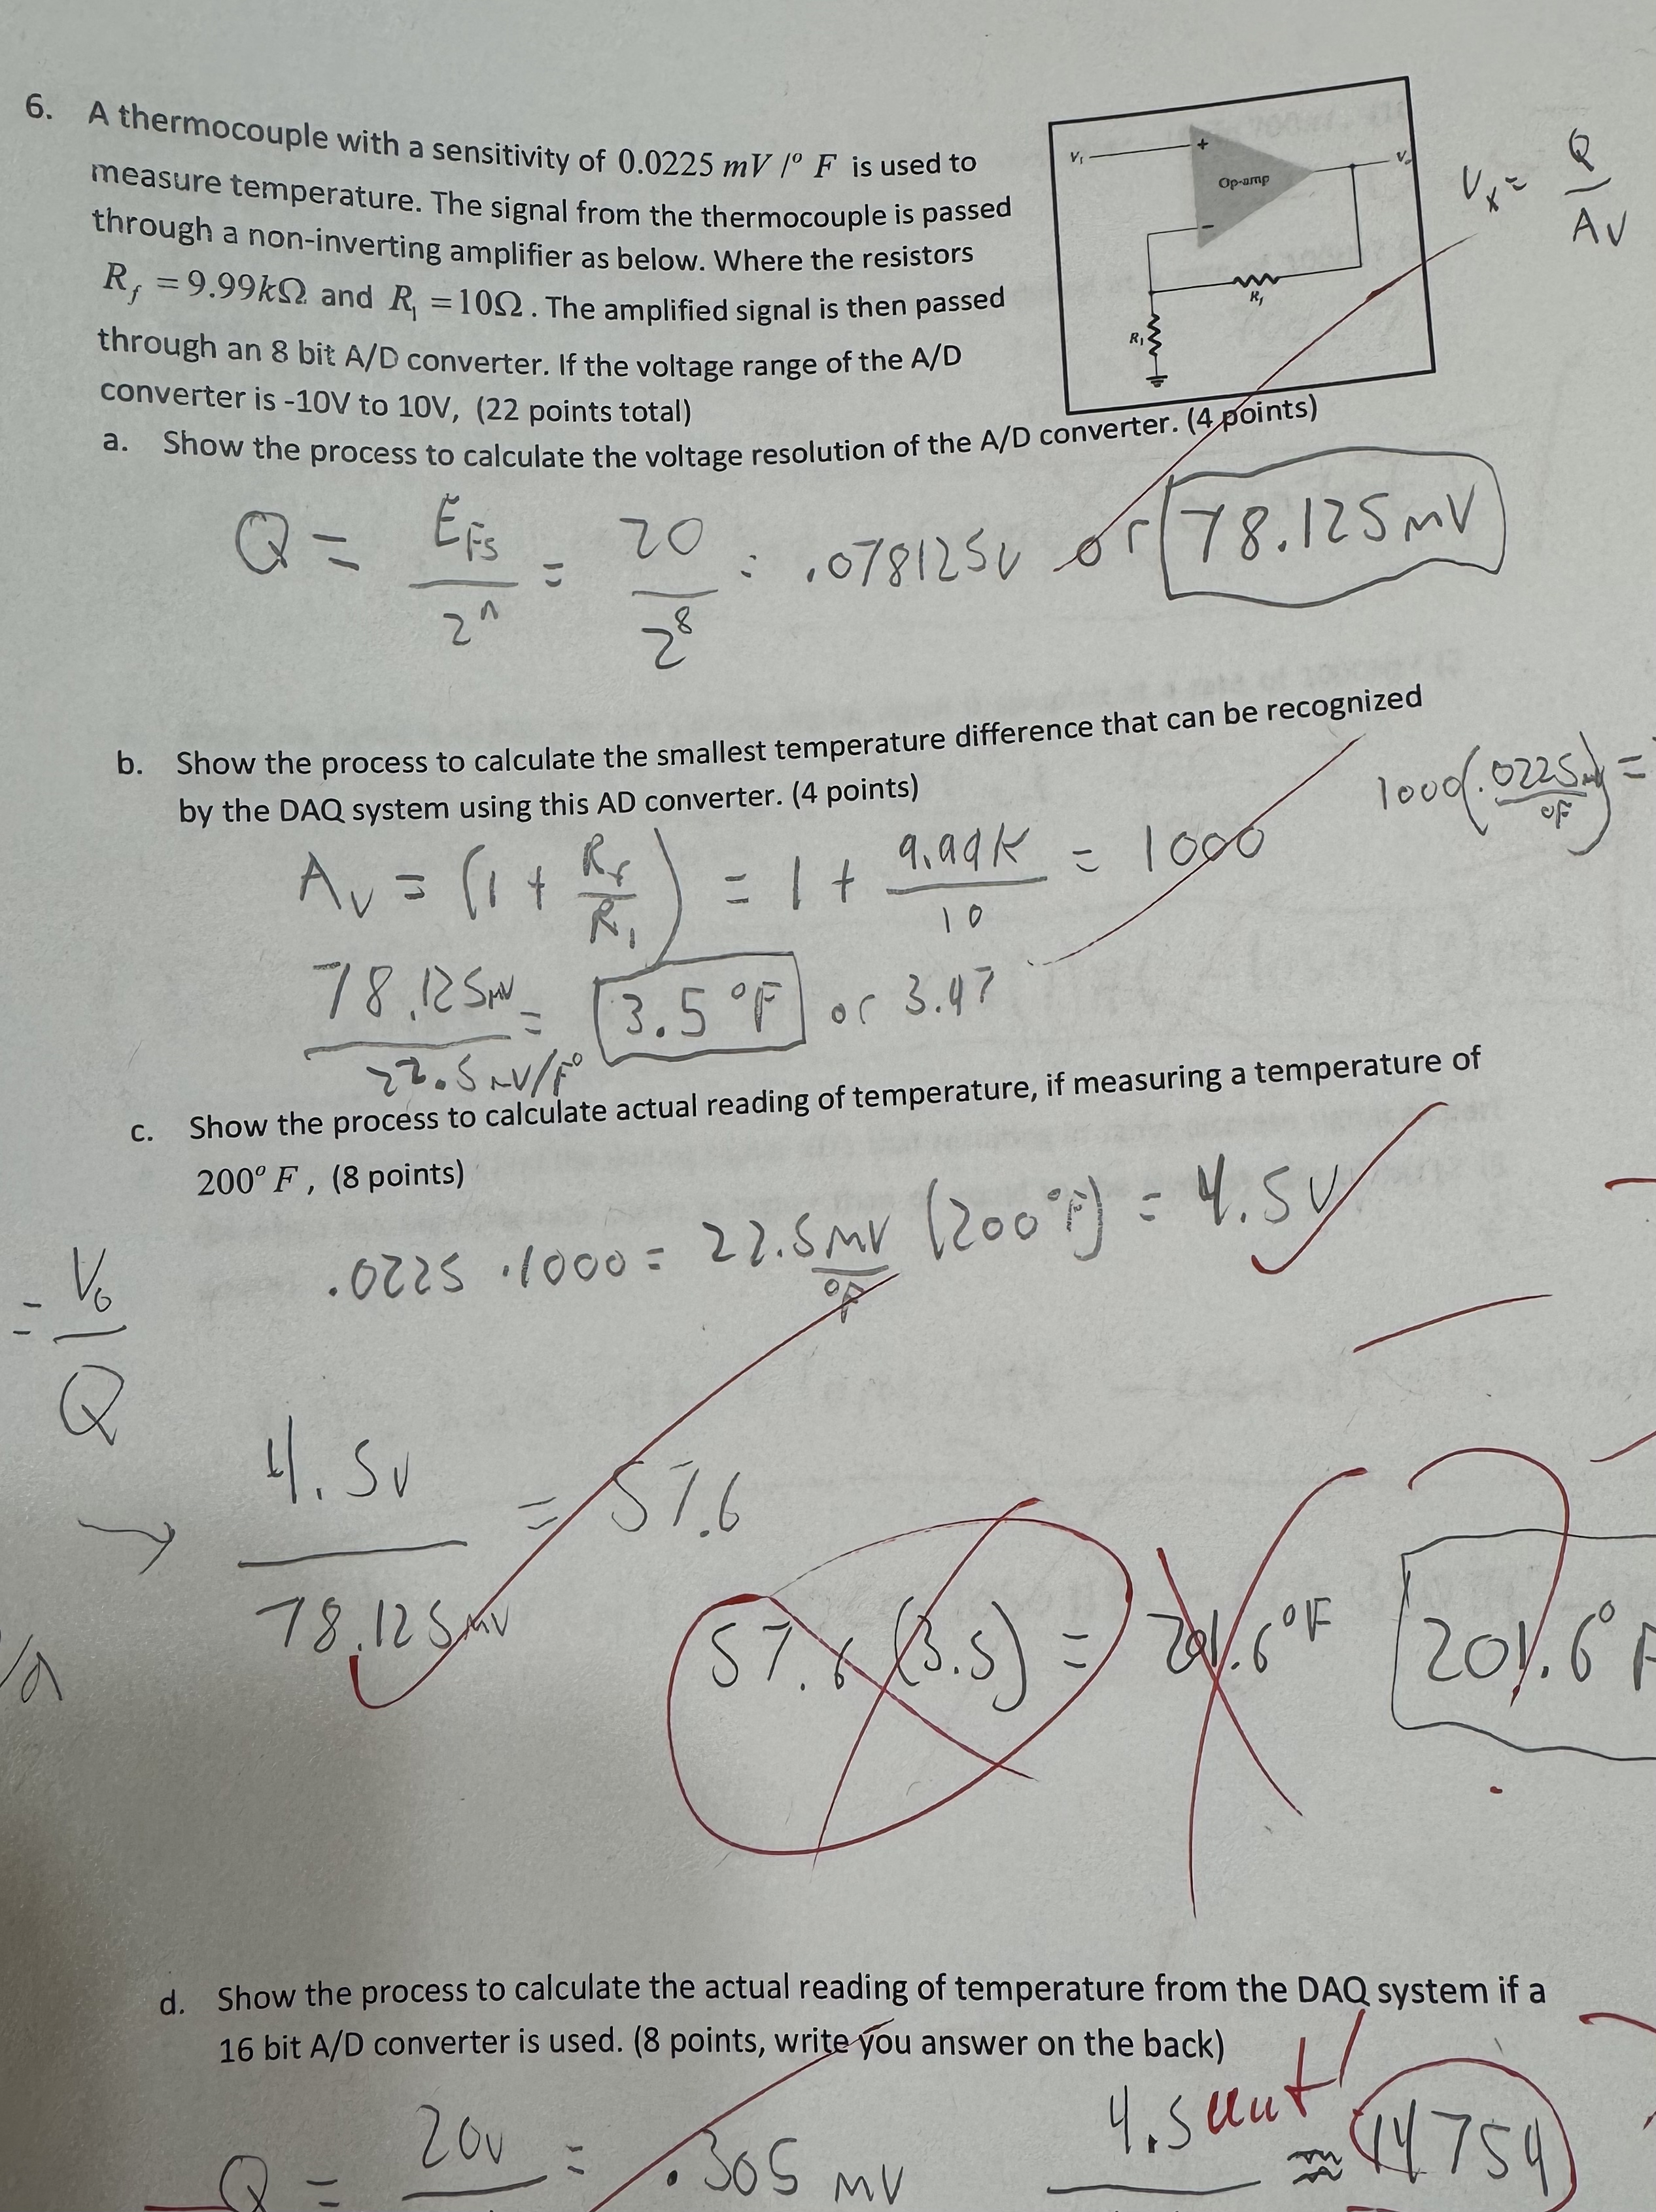 6. A thermocouple with a sensitivity of 0.0225 mV /° F is used to
measure temperature. The signal from the thermocouple is passed
through a non-inverting amplifier as below. Where the resistors
R_f = 9.99kΩ and R_1 = 10Ω. The amplified signal is then passed
through an 8 bit A/D converter. If the voltage range of the A/D
converter is -10V to 10V, (22 points total)
V_1
+
Op-amp
-
V_o
R_f
R_1
V_x = Q / AV
a. Show the process to calculate the voltage resolution of the A/D converter. (4 points)
Q = E_FS / 2^n = 20 / 2^8 = .078125V or 78.125mV
b. Show the process to calculate the smallest temperature difference that can be recognized
by the DAQ system using this AD converter. (4 points)
1000(.0225mV/°F) =
A_V = (1 + R_f / R_1) = 1 + 9.99K / 10 = 1000
78.125mV / 22.5mV/F° = 3.5°F or 3.47
c. Show the process to calculate actual reading of temperature, if measuring a temperature of
200° F, (8 points)
.0225 · 1000 = 22.5mV/°F (200°F) = 4.5V
= V_o / Q
→ 4.5V / 78.125mV = 57.6
57.6 (3.5) = 201.6°F 201.6° F
?
d. Show the process to calculate the actual reading of temperature from the DAQ system if a
16 bit A/D converter is used. (8 points, write you answer on the back)
Q = 20V = .305 mV
4.5 ≈ 14754